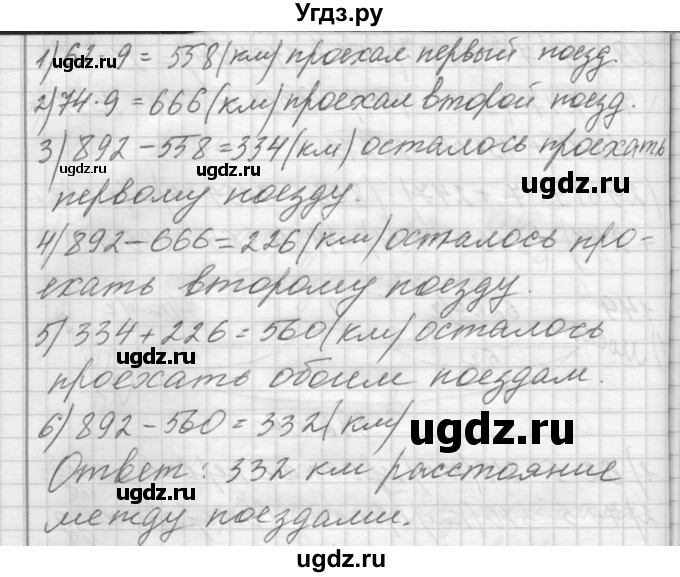 Угдз.ру
1) 62 · 9 = 558 (км) проехал первый поезд.
2) 74 · 9 = 666 (км) проехал второй поезд.
3) 892 - 558 = 334 (км) осталось проехать
первому поезду.
4) 892 - 666 = 226 (км) осталось про-
ехать второму поезду.
5) 334 + 226 = 560 (км) осталось
проехать обоим поездам.
6) 892 - 560 = 332 (км)
Ответ: 332 км расстояние
между поездами.
ugdz.ru
ugdz.ru
ugdz.ru
ugdz.ru
ugdz.ru
ugdz.ru
ugdz.ru
ugdz.ru
ugdz.ru
ugdz.ru
ugdz.ru